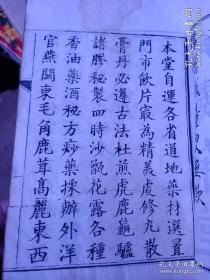 本堂自運各省道地藥材選置
門市飲片最為精美虔修丸散
膏丹必遵古法杜煎虎鹿龜驢
諸膠秘製四時沙甑花露各種
香油藥酒秘方炒藥採辦外洋
官燕關東毛角鹿茸高麗東西